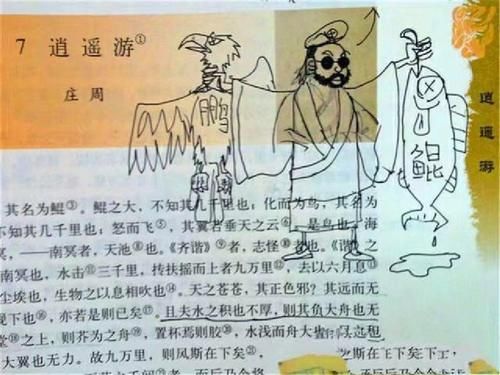 7 逍遥游①
庄周
鹏
鲲
逍遥游
其名为鲲③。鲲之大,不知其几千里也;化而为鸟,其名为
不知其几千里也;怒而飞⑤,其翼若垂天之云⑥。是鸟也,海
冥,——南冥者,天池⑧也。《齐谐》⑨者,志怪⑩者也。《谐》之
南冥也,水击⑪三千里,抟扶摇而上者九万里⑫,去以六月息⑬
尘埃也,生物之以息相吹也⑭。天之苍苍,其正色邪?其远而无
视下也⑯,亦若是则已矣⑰。且夫水之积也不厚,则其负大舟也无
堂⑱之上,则芥为之舟⑲,置杯焉则胶⑳,水浅而舟大也
大翼也无力。故九万里,则风斯在下矣
斯在下矣
而后乃今将